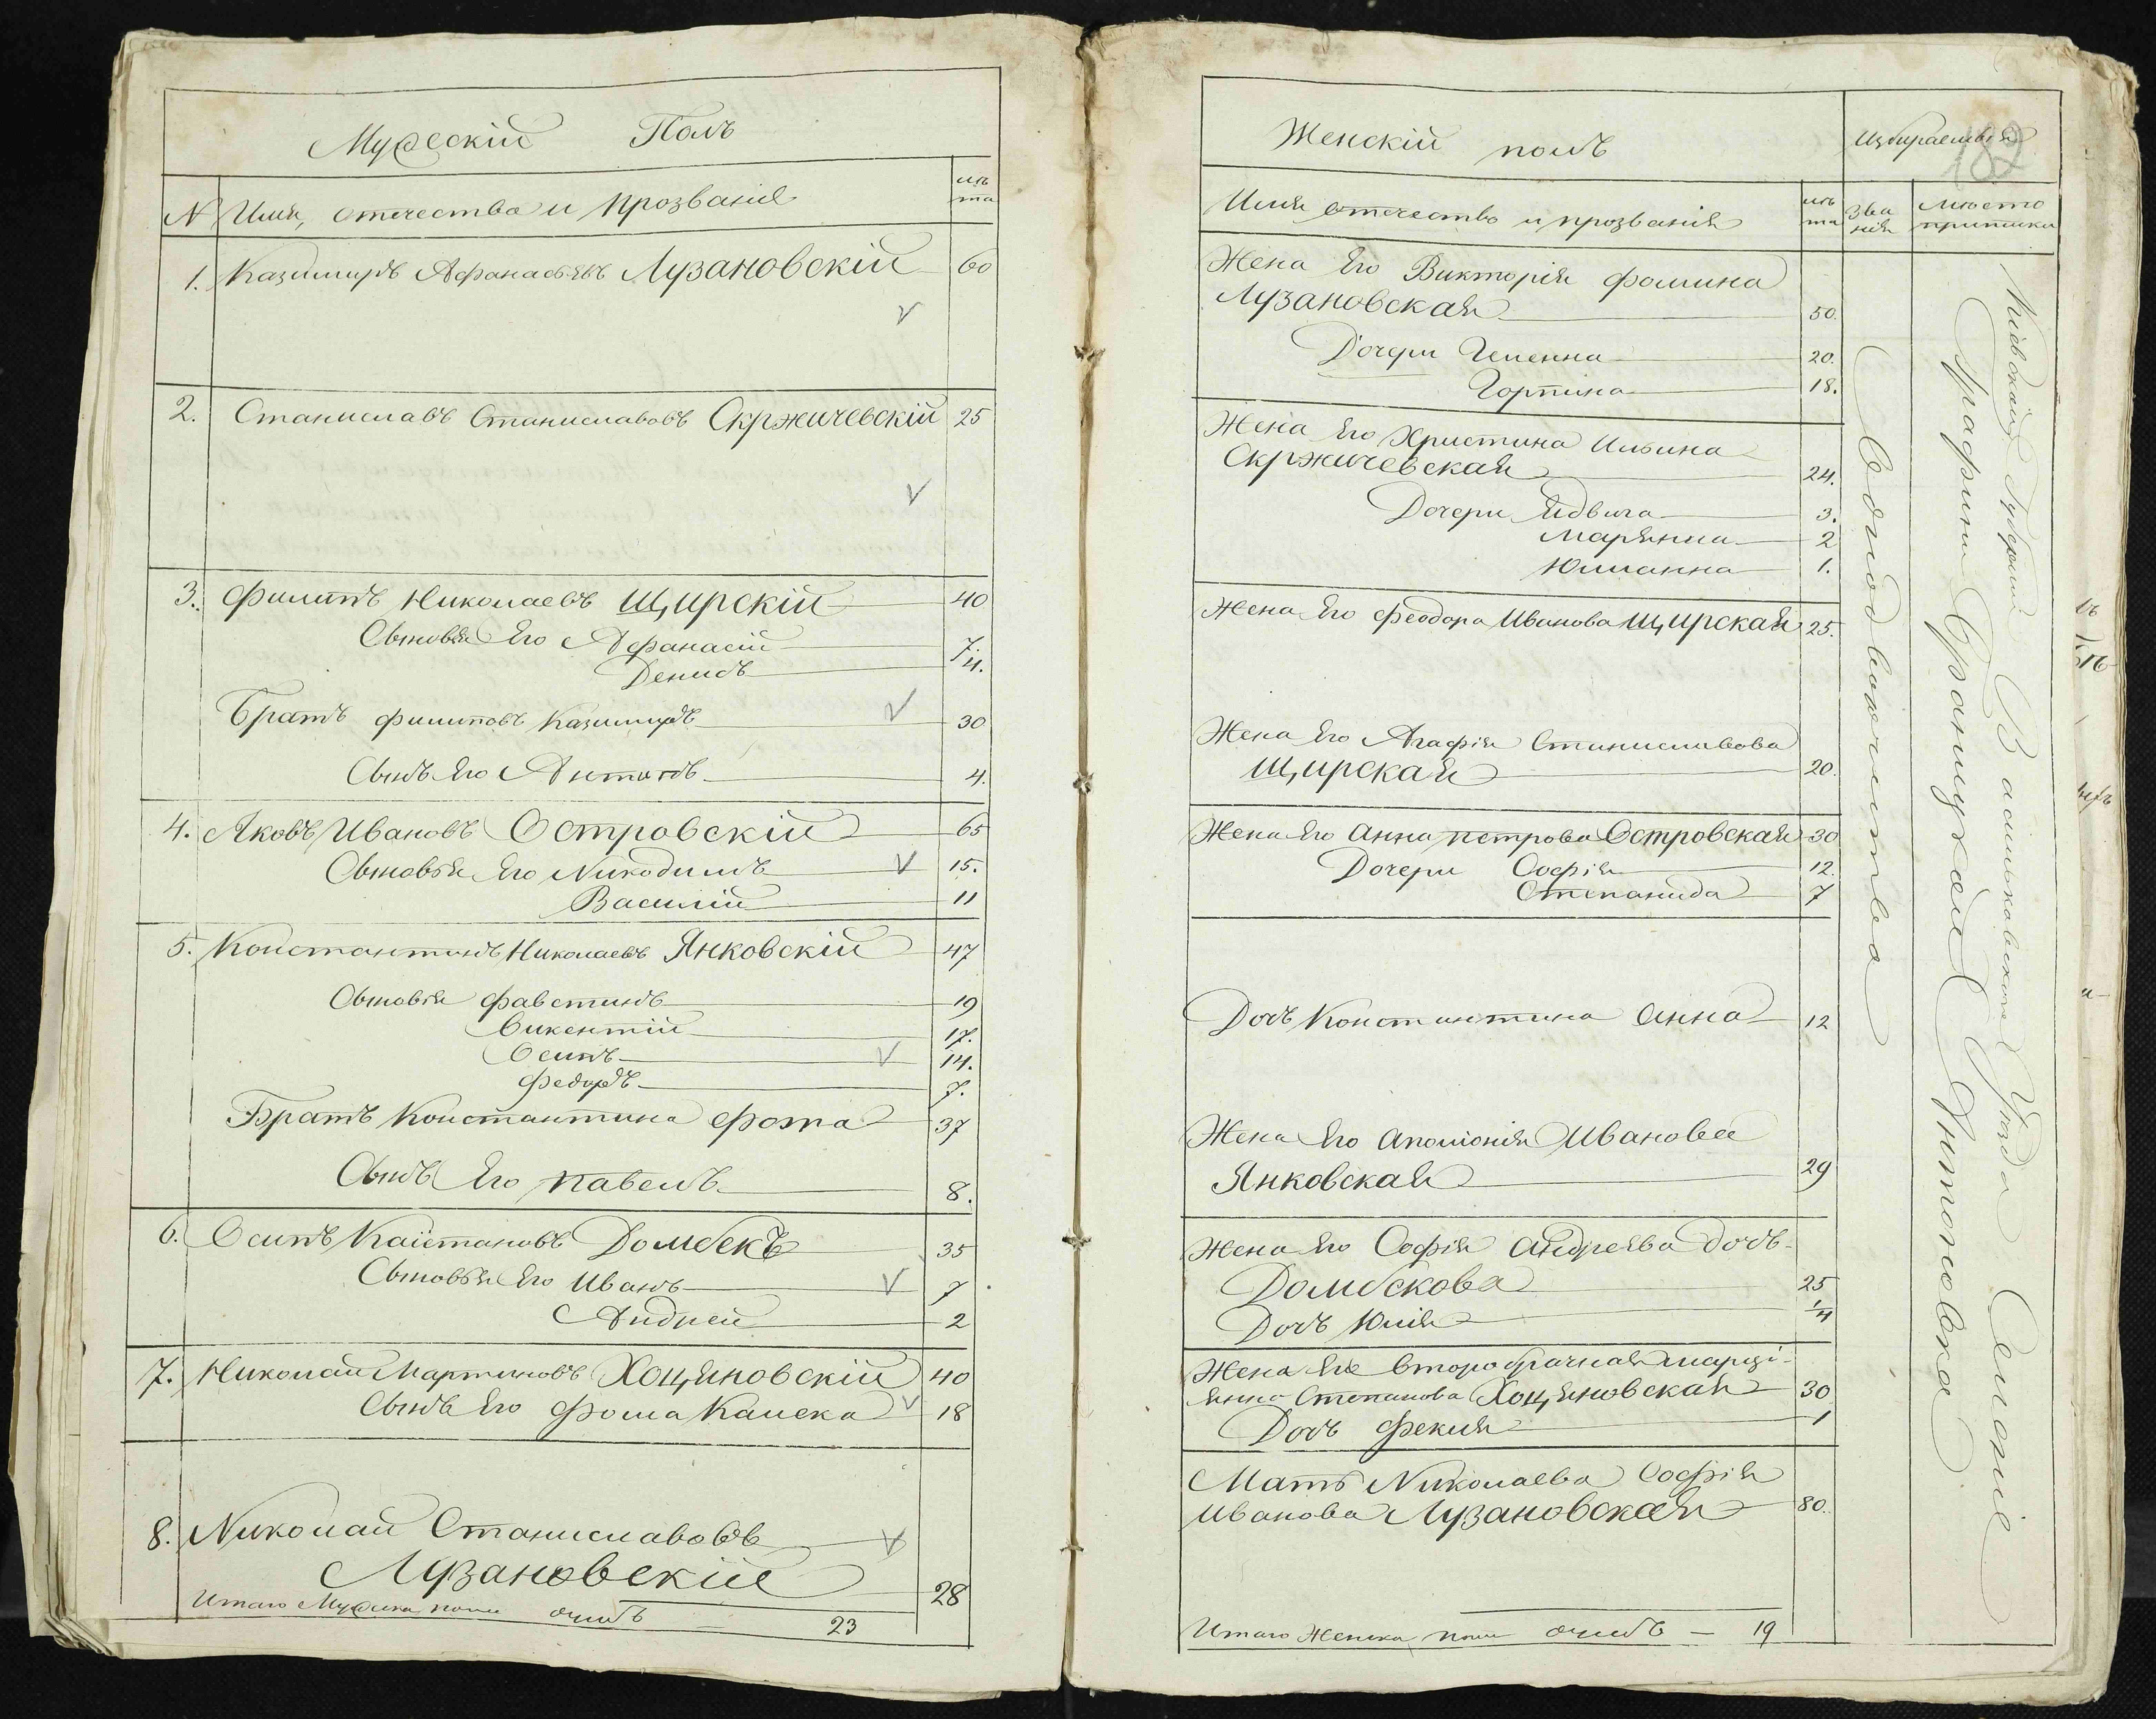 Мужескій Полъ
N Имя, отчества и прозваніе лѣта
1. Казимиръ Афанасьевъ Лузановскій 60
2. Станиславъ Станиславовъ Скржичевскій 25
3. Филипъ Николаевъ Щирскій 40
Сыновья Его Афанасій 7.
Денисъ 4.
Братъ Филиповъ Казимиръ 30
Сынъ Его Антонъ 4.
4. Яковъ Ивановъ Островскій 65
Сыновья Его Никодимъ 15.
Василій 11
5. Константинъ Николаевъ Янковскій 47
Сыновья Фавстинъ 19
Викентій 17.
Осипъ 14.
Федоръ 7.
Братъ Константина Фома 37
Сынъ Его Павелъ 8.
6. Осипъ Каістановъ Домбекъ 35
Сыновья Его Иванъ 7
Андрей 2
7. Николай Мартиновъ Хоцяновскій 40
Сынъ Его Фома Канека 18
8. Николай Станиславовъ
Лузановскій 28
Итаго Мужеска пола душъ — 23
Женскій полъ
Избираемыя
182
Имя отчество и прозванія лѣта
званія
Мѣсто приписки
Жена Его Викторія Фомина
Лузановская 50.
Дочери Гелена 20.
Горпина 18.
Жена Его Христина Ильина
Скржичевская 24.
Дочери Ядвига 3.
Марянна 2
Юлианна 1.
Жена Его Феодора Иванова Щирская 25.
Жена Его Агафія Станиславова
Щирская 20.
Жена Его Анна Петрова Островская 30
Дочери Софія 12.
Степанида 7
Дочь Константина Анна 12
Жена Его Аполіонія Иванова
Янковская 29
Жена Его Софія Андреева дочь
Домбскова 25
Дочь Юлія 1/4
Жена Его второбрачная Марці-
янна Степанова Хоцяновская 30
Дочь Фекля 1
Мать Николаева Софія
Иванова Лузановская 80.
Итаго Женска пола душъ — 19
Однодворчества
Кіевской Губерніи Васильковского Уѣзда Селеніе
Графини Браницкой Антоновка